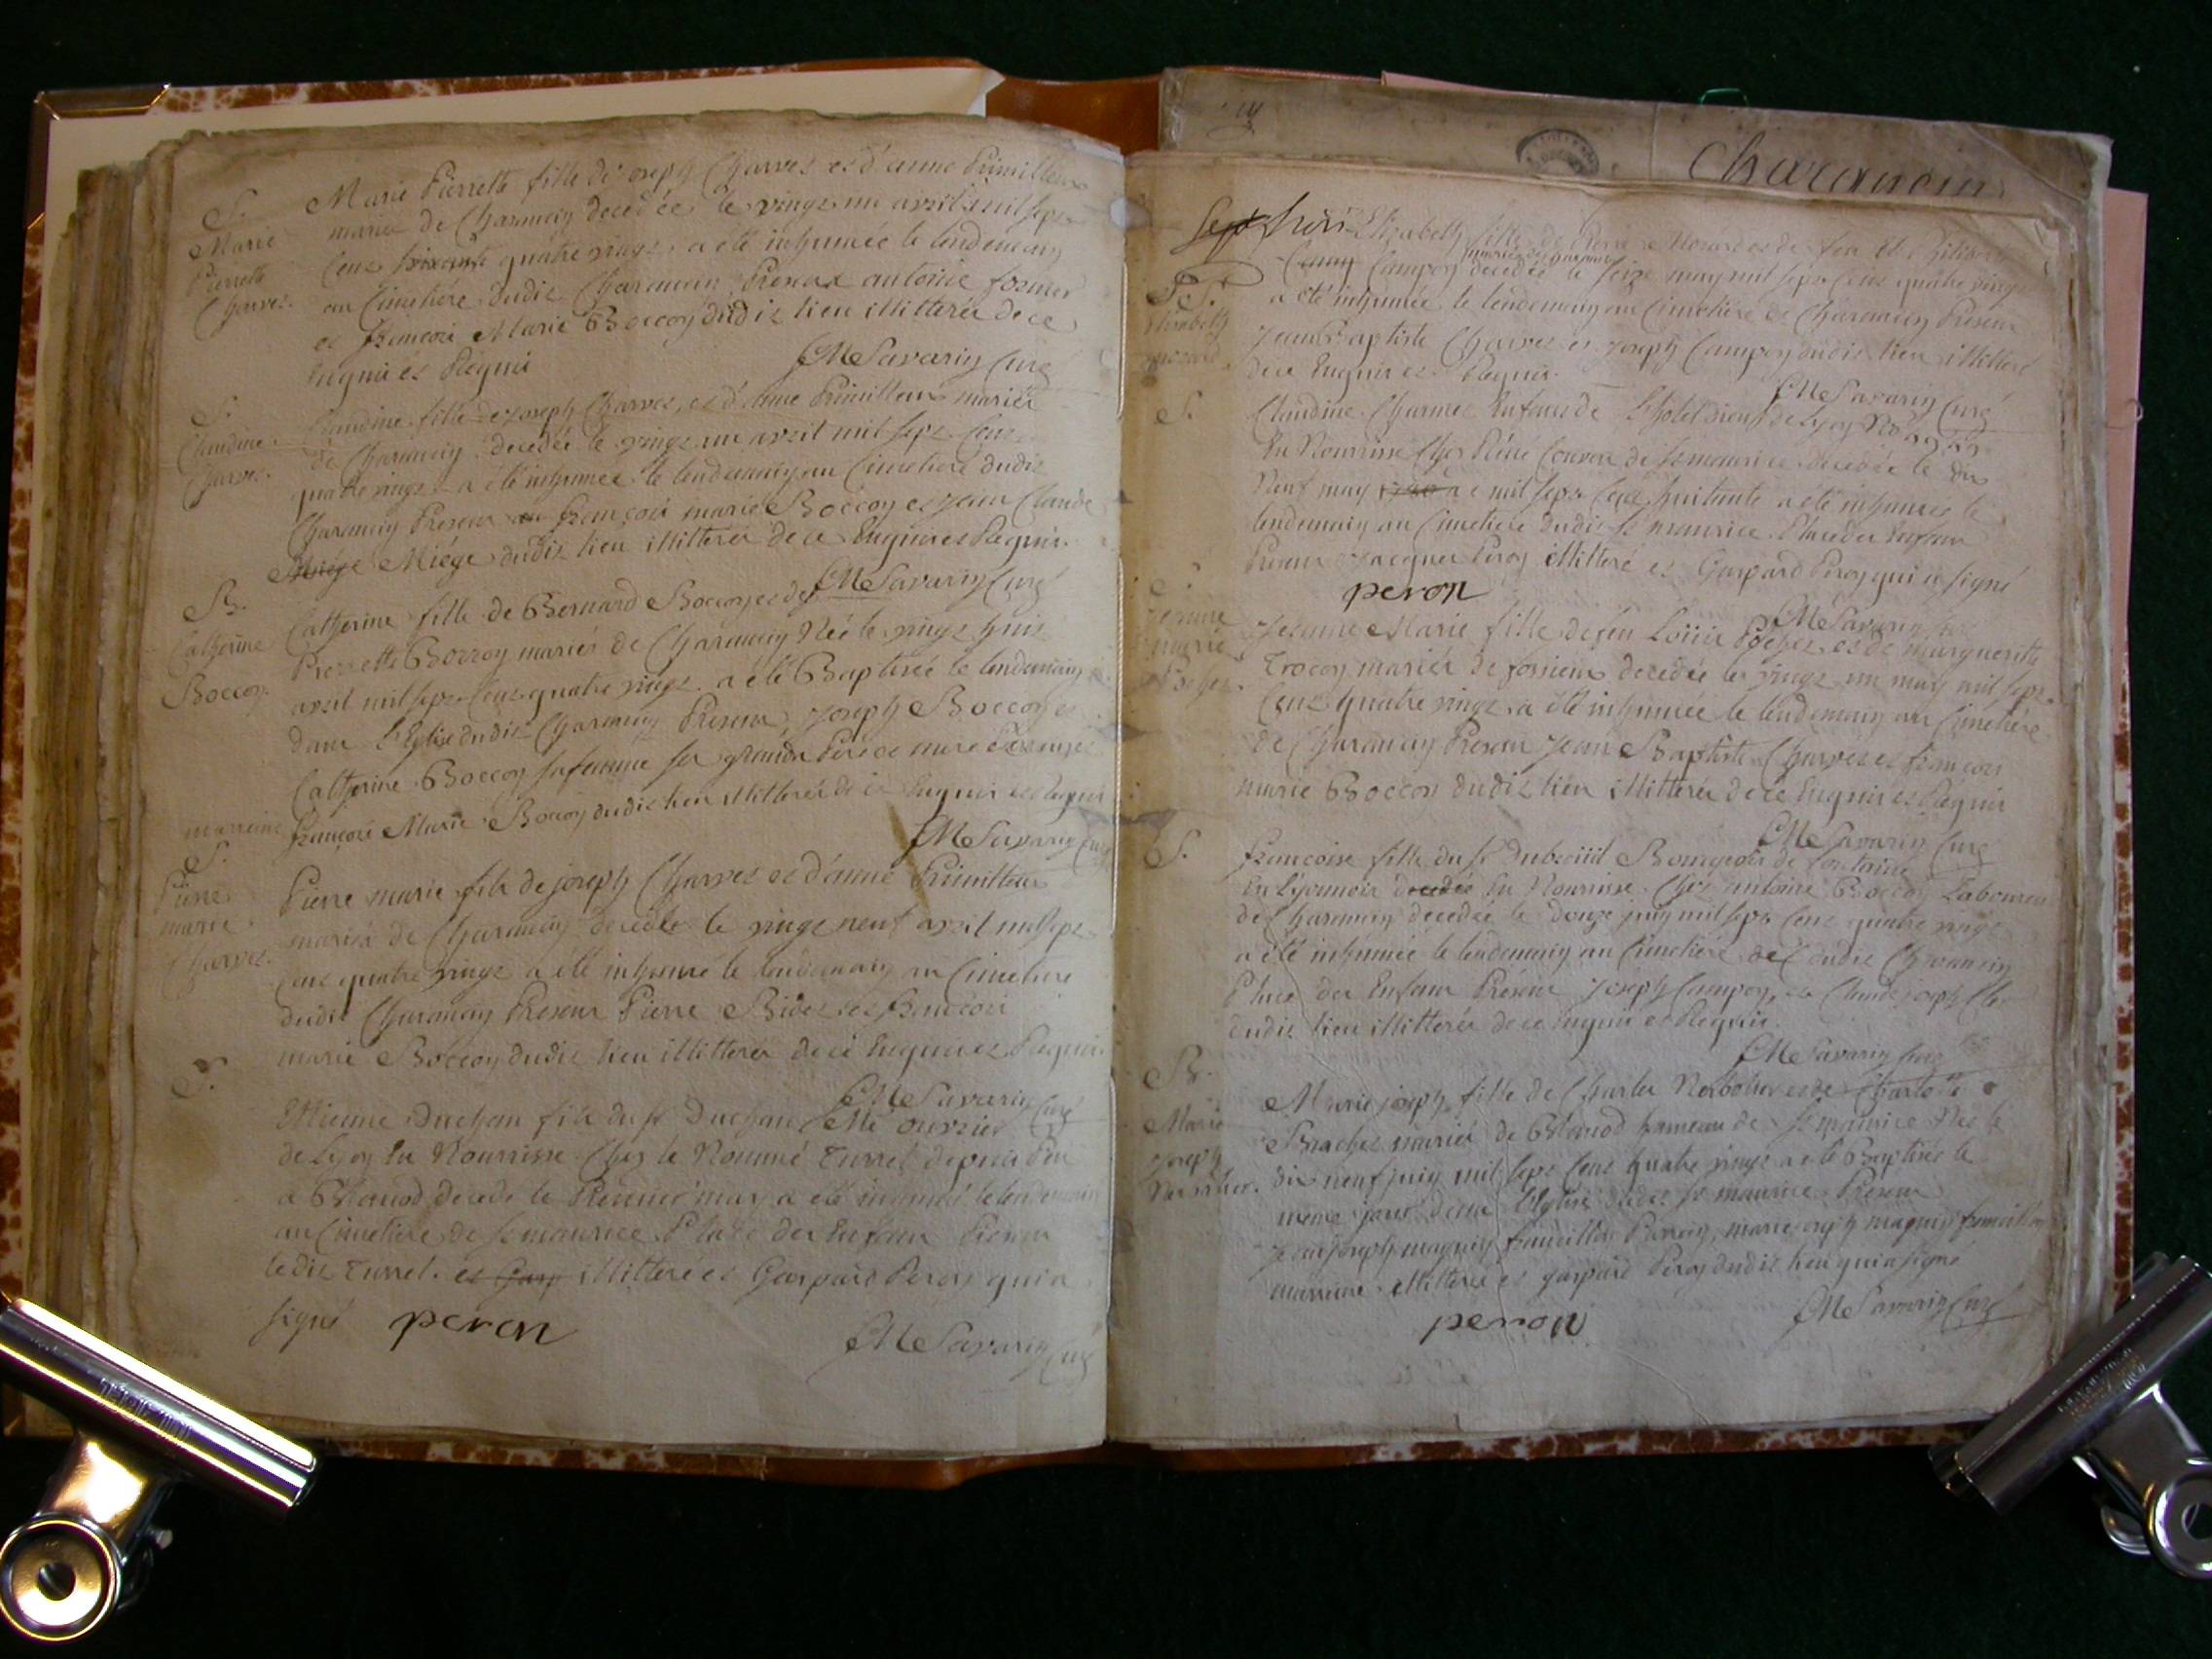 S.
Marie
Pierrette
Charvet.
Marie Pierrette fille de joseph Charvet et d'anne Primilleux
mariés de Charancin decedée le vingt un avril mil sept
cent soixante quatre vingt, a été inhumée le lendemain
au Cimetiére dudit Charancin Presens antoine
et françois Marie Boccon dudit lieu illitterés de ce
enquis et Réquis
CM Savarin Curé
S.
Claudine
Charvet.
Claudine fille de joseph Charvet, et d'anne Primilleux mariés
de Charancin decedée le vingt un avril mil sept cent
quatre vingt a été inhumée le lendemain au Cimetiére dudit
Charancin Presens françois marie Boccon et jean Claude
Miége Miége dudit lieu illitterés de ce Enquis et Requis.
CM Savarin Curé
B.
Catherine
Boccon.
Catherine fille de Bernard Boccon et de
Pierrette Borron mariés de Charancin Née le vingt huit
avril mil sept cent quatre vingt a été Baptisée le lendemain
dans L'Eglise dudit Charancin Presens, joseph Boccon et
Catherine Boccon sa femme ses grands Pere et mere
marraine françois Marie Boccon dudit lieu illitterés de ce Enquis et Requis
CM Savarin Curé
S.
Pierre
marie
Charvet.
Pierre marie fils de joseph Charvet et d'anne Primilleux
mariés de Charancin decedé le vingt neuf avril mil sept
cent quatre vingt a été inhumé le lendemain au Cimetiere
dudit Charancin Presens Pierre Bidet et françois
marie Boccon dudit lieu illitterés de ce Enquis et Requis.
CM Savarin Curé
S.
Etienne Duchan fils du sr Duchan Me ouvrier
de Lyon En Nourrisse Chez le Nommé Turrel depuis peu
a Blanod decedé le Premier may a été inhumé le lendemain
au Cimetiere de st maurice Place des Enfans Presens
ledit Turrel. et Gasp illitteré et Gaspard Peron qui a
signé peron
CM Savarin Curé
Charancin
Elizabeth fille de Pierre Morard et de feu
Campon decedée le seize may mil sept cent quatre vingt
a été inhumée le lendemain au Cimetiére de Charancin Presens
Jean Baptiste Charvet et joseph Campon dudit lieu illitterés
de ce Enquis et Requis.
CM Savarin Curé
S.
Claudine Charmet Enfant de L'hotel dieu de Lyon No
En Nourrisse Chez Réné Couvon de st maurice decedée le dix
Neuf may mil sept cent huitante a été inhumée le
lendemain au Cimetiere dudit st maurice Place des Enfans
Presens Jacques Peron illitteré et Gaspard Peron qui a signé
peron
CM Savarin Curé
S.
Jeanne
marie
Jeanne Marie fille de feu Loüis Pochet et de margueritte
Trocon mariés de fossieux decedée le vingt un may mil sept
cent quatre vingt a été inhumée le lendemain au Cimetiére
de Charancin Presens Jean Baptiste Charvet et françois
marie Boccon dudit lieu illitterés de ce Enquis et Requis
CM Savarin Curé
S.
françoise fille du sr Dubreüil Bourgeois de
En Lyonnois decedée En Nourrisse Chez antoine Boccon Laboureur
de Charancin decedée le douze juin mil sept cent quatre vingt
a été inhumée le lendemain au Cimetiére de dudit Charancin
Place des Enfans Présens joseph Campon, et Claude joseph
dudit lieu illitterés de ce Enquis et Requis.
CM Savarin Curé
B.
Marie
joseph
Marie joseph fille de Charles Norbolier et de Charlotte
Brachet mariés de Blanod hameau de st maurice Née le
dix neuf juin mil sept cent quatre vingt a été Baptisée le
même jour dans l'Eglise dudit st maurice Presens
jean joseph magnin Parrain, marie joseph magnin
marraine illitterés et gaspard Peron dudit lieu qui a signé
peron
CM Savarin Curé